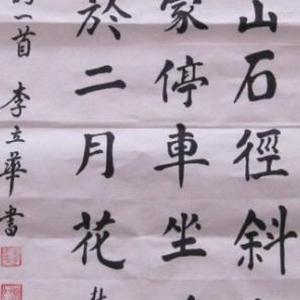 山石徑斜
家停車坐
於二月花
一首 李立華書